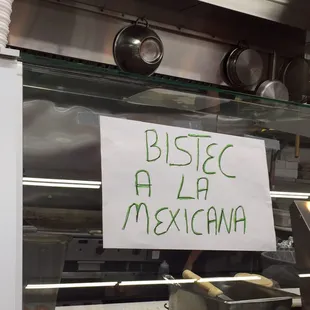 BISTEC
A LA
MEXICANA